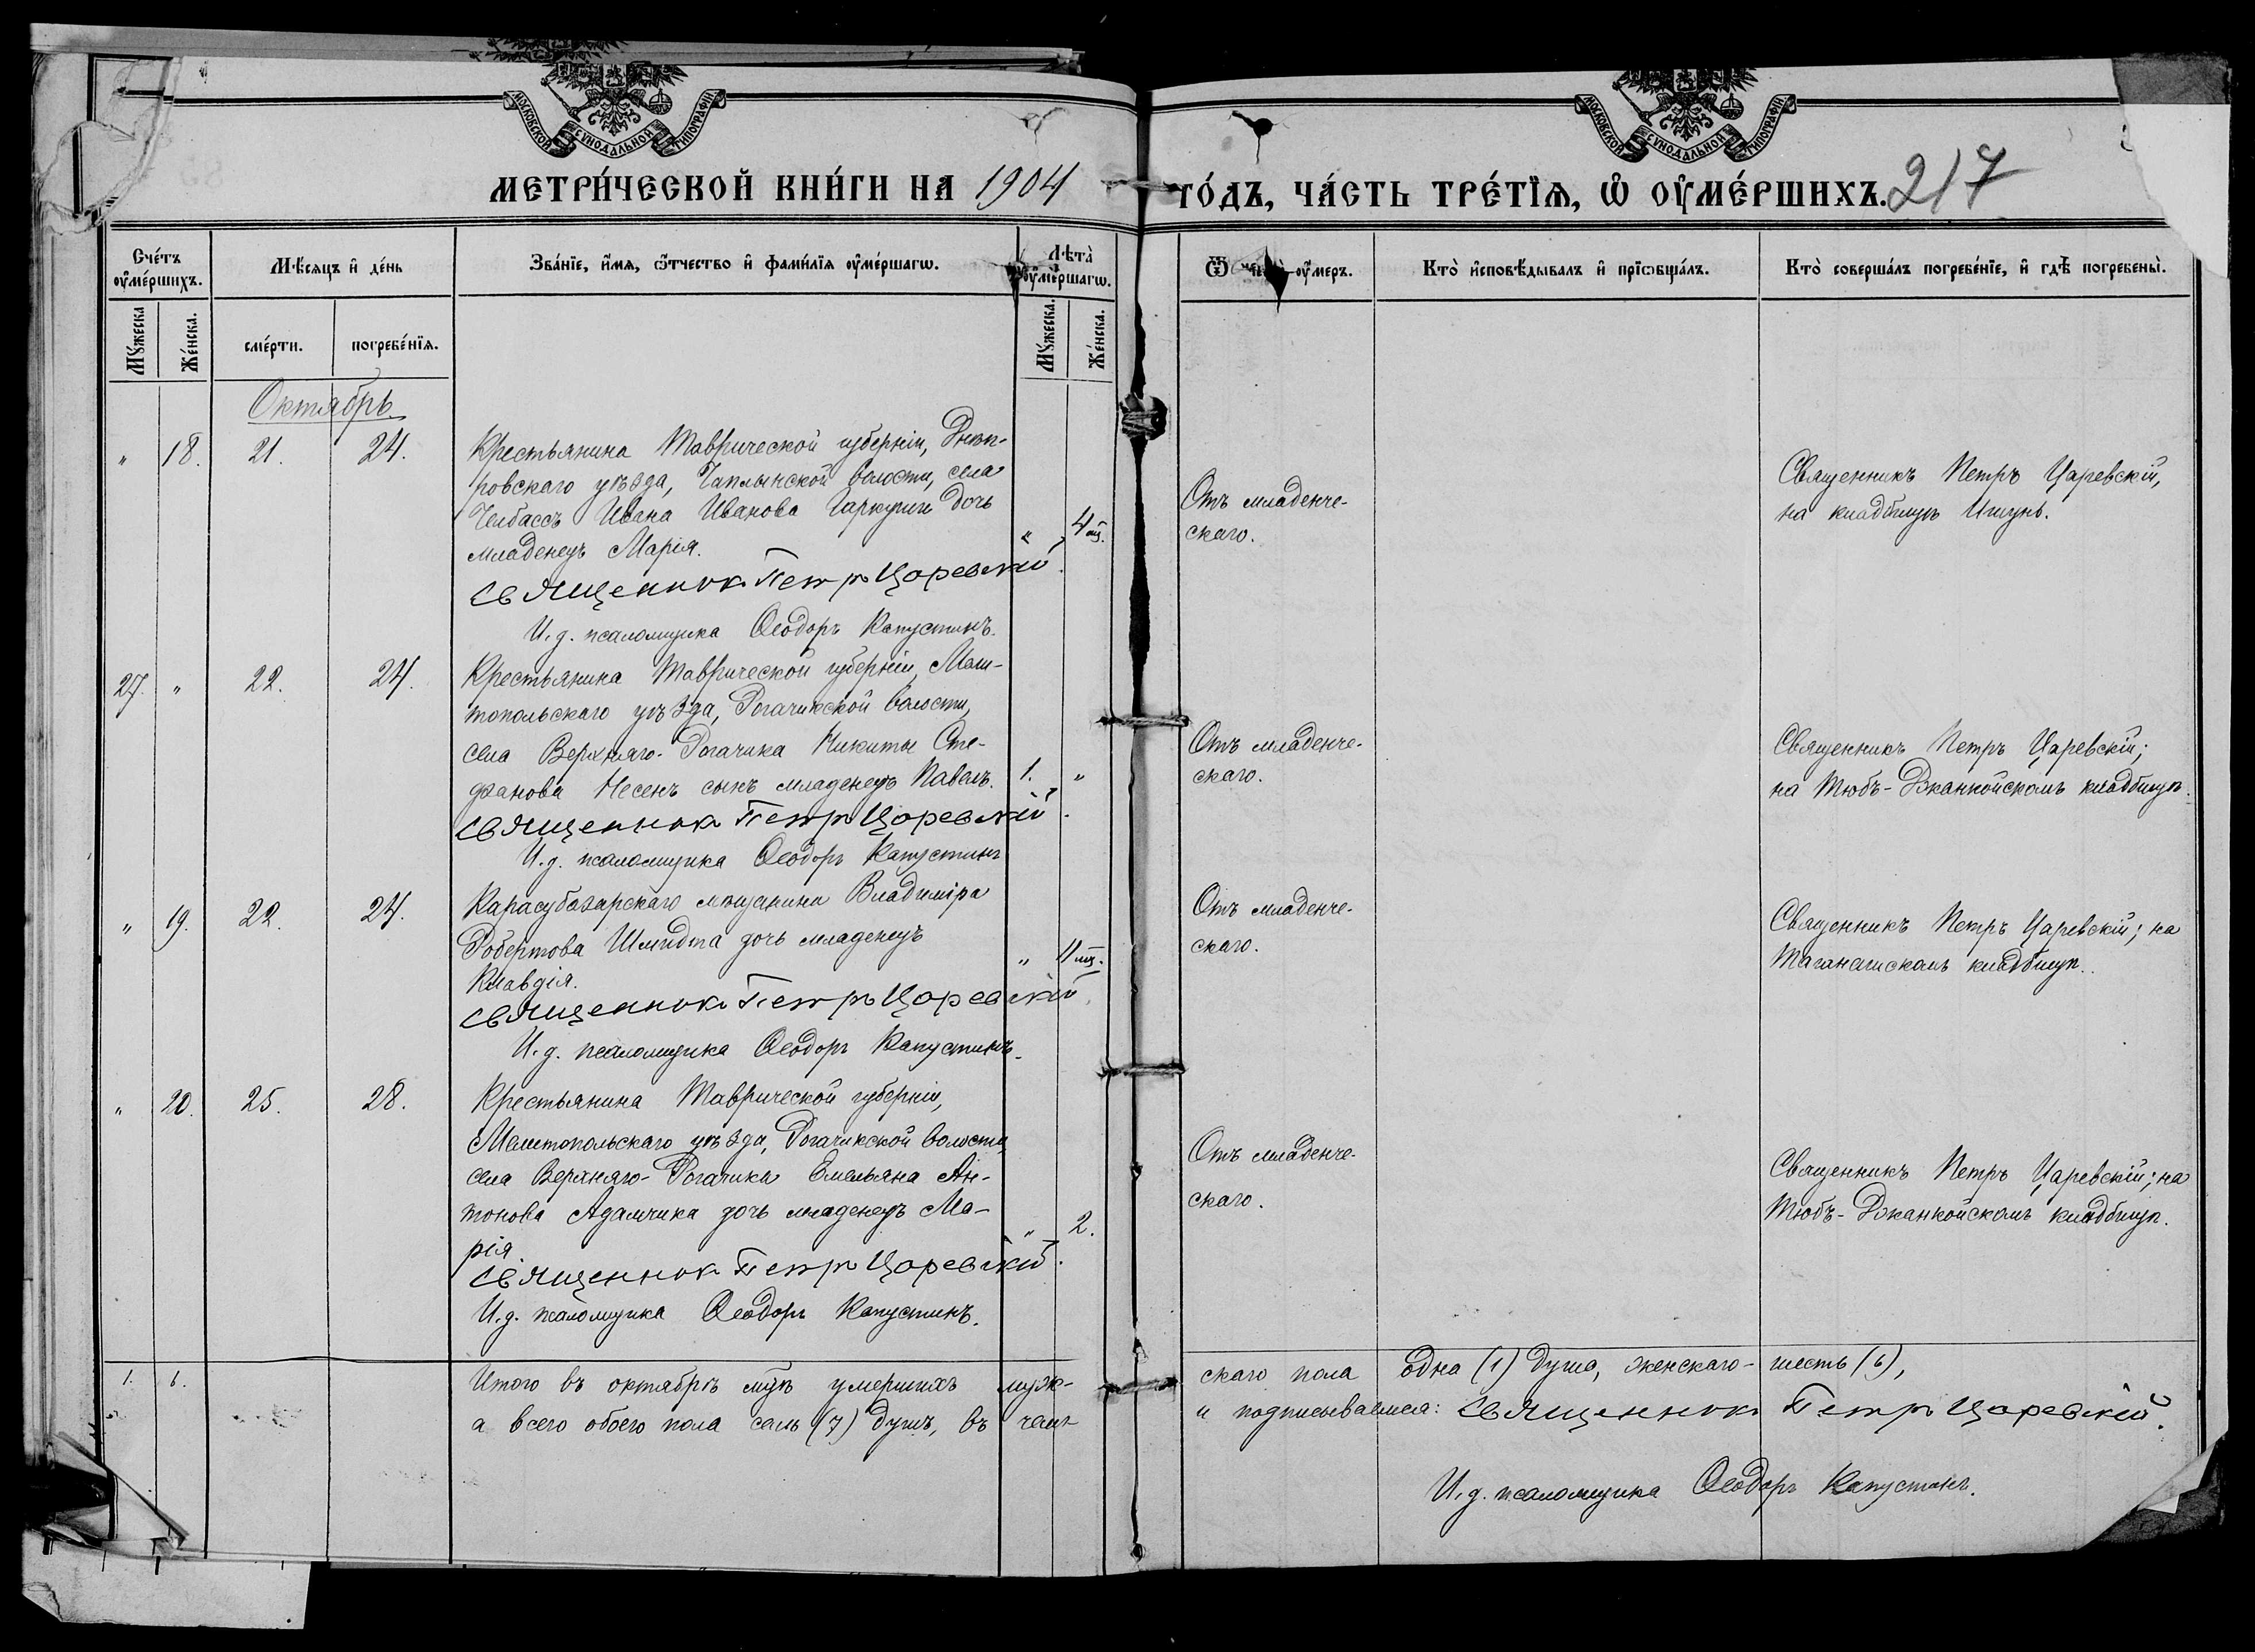 МОСКОВСКОЙ СУНОДАЛЬНОЙ ТИПОГРАФІИ
МОСКОВСКОЙ СУНОДАЛЬНОЙ ТИПОГРАФІИ
МЕТРИ́ЧЕСКОЙ КНИ́ГИ НА 1904 ГО́ДЪ, ЧА́СТЬ ТРЕ́ТЇѦ, Ѽ ОУ҆МЕ́РШИХЪ. 217
Сче́тъ оу҆ме́ршихъ.
Мѣ́сяцъ и҆ де́нь
Зва́нїе, и҆́мя, ѻ҆́тчество и҆ фами́лїя оу҆ме́ршагѡ.
Лѣта̀ оу҆ме́ршагѡ.
Ѿ чегѡ̀ оу҆́меръ.
Кто̀ и҆сповѣ́дывалъ и҆ прїѡбща́лъ.
Кто̀ соверша́лъ погребе́нїе, и҆ гдѣ̀ погребены̀.
Мꙋ́жеска
Же́нска.
сме́рти.
погребе́нїя.
Мꙋ́жеска.
Же́нска.
Октябрь
" 18. 21. 24. Крестьянина Таврической губерніи, Днѣп-
ровскаго уѣзда, Чаплынской волости, села
Челбассъ Ивана Иванова Гаркуши дочь
младенецъ Марія. " 4 мц.
Священникъ Петръ Царевскій.
И. д. псаломщика Ѳеодоръ Капустинъ.
Отъ младенче-
скаго.
Священникъ Петръ Царевскій,
на кладбищѣ Ишунь.
27. " 22. 24. Крестьянина Таврической губерніи, Мели-
топольскаго уѣзда, Рогачикской волости,
села Верхняго-Рогачика Никиты Сте-
фанова Несенъ сынъ младенецъ Павелъ. 1. "
Священникъ Петръ Царевскій.
И. д. псаломщика Ѳеодоръ Капустинъ
Отъ младенче-
скаго.
Священникъ Петръ Царевскій;
на Тюбъ-Джанкойскомъ кладбищѣ.
" 19. 22. 24. Карасубазарскаго мѣщанина Владиміра
Робертова Шмидта дочь младенецъ
Клавдія. " 11 мц.
Священникъ Петръ Царевскій.
И. д. псаломщика Ѳеодоръ Капустинъ.
Отъ младенче-
скаго.
Священникъ Петръ Царевскій; на
Таганашскомъ кладбищѣ.
" 20. 25. 28. Крестьянина Таврической губерніи,
Мелитопольскаго уѣзда, Рогачикской волости,
села Верхняго-Рогачика Емельяна Ан-
тонова Адамчика дочь младенецъ Ма-
рія. " 2.
Священникъ Петръ Царевскій.
И. д. псаломщика Ѳеодоръ Капустинъ.
Отъ младенче-
скаго.
Священникъ Петръ Царевскій; на
Тюбъ-Джанкойскомъ кладбищѣ.
1. 6. Итого въ октябрѣ мцѣ умершихъ муж-скаго пола одна (1) душа, женскаго - шесть (6),
а всего обоего пола семь (7) душъ, въ чемъ и подписываемся: Священникъ Петръ Царевскій.
И. д. псаломщика Ѳеодоръ Капустинъ.